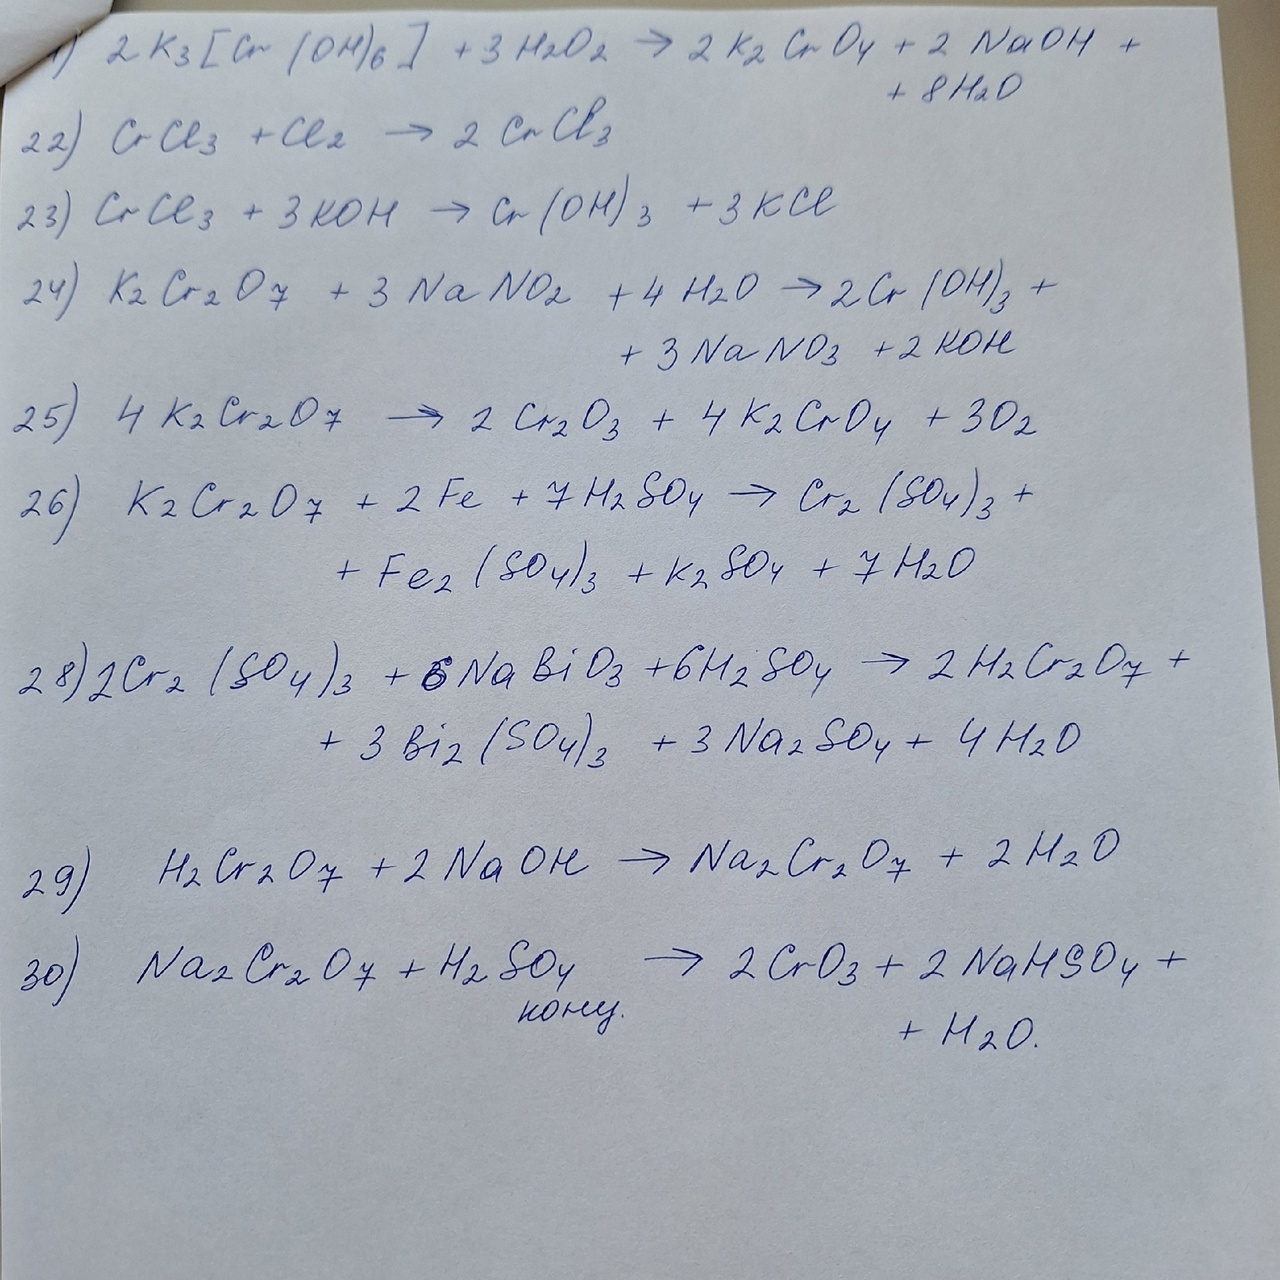 1) 2 K3 [Cr (OH)6] + 3 H2O2 → 2 K2 CrO4 + 2 NaOH +
+ 8 H2O
22) CrCl3 + Cl2 → 2 CrCl3
23) CrCl3 + 3 KOH → Cr (OH)3 + 3 KCl
24) K2Cr2O7 + 3 NaNO2 + 4 H2O → 2Cr (OH)3 +
+ 3 NaNO3 + 2 KOH
25) 4 K2Cr2O7 → 2 Cr2O3 + 4 K2CrO4 + 3O2
26) K2Cr2O7 + 2 Fe + 7 H2SO4 → Cr2 (SO4)3 +
+ Fe2 (SO4)3 + K2SO4 + 7 H2O
28) 2Cr2 (SO4)3 + 6 NaBiO3 + 6H2SO4 → 2 H2Cr2O7 +
+ 3 Bi2 (SO4)3 + 3 Na2SO4 + 4 H2O
29) H2Cr2O7 + 2 NaOH → Na2Cr2O7 + 2 H2O
30) Na2Cr2O7 + H2SO4 → 2 CrO3 + 2 NaHSO4 +
конц.
+ H2O.